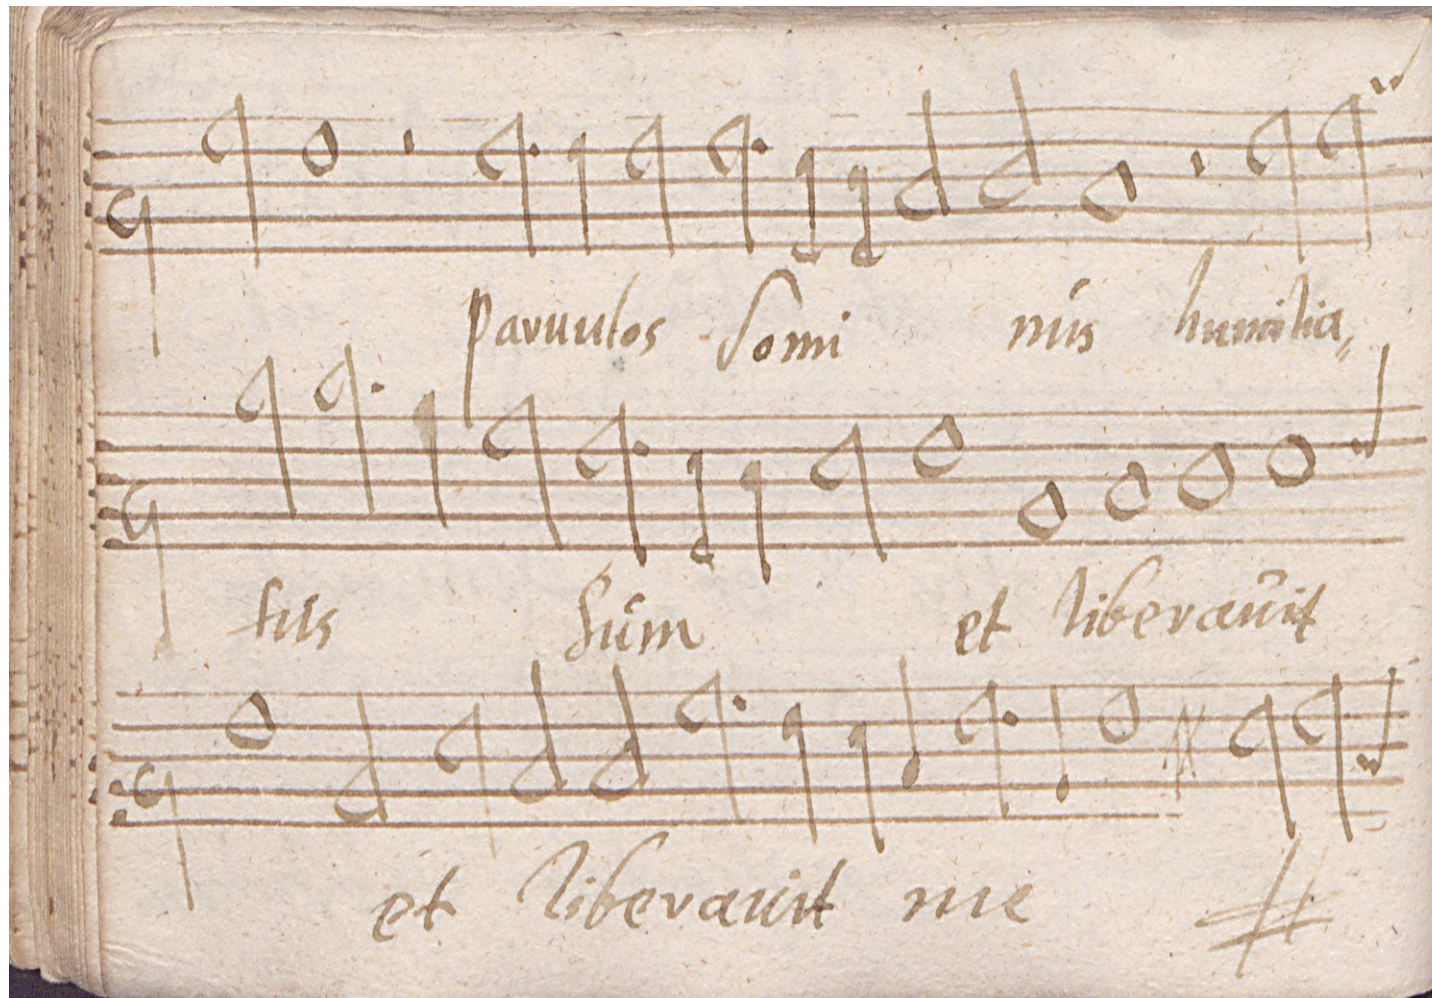 parvulos domi nus humilia
tus sum et liberavit
et liberavit me